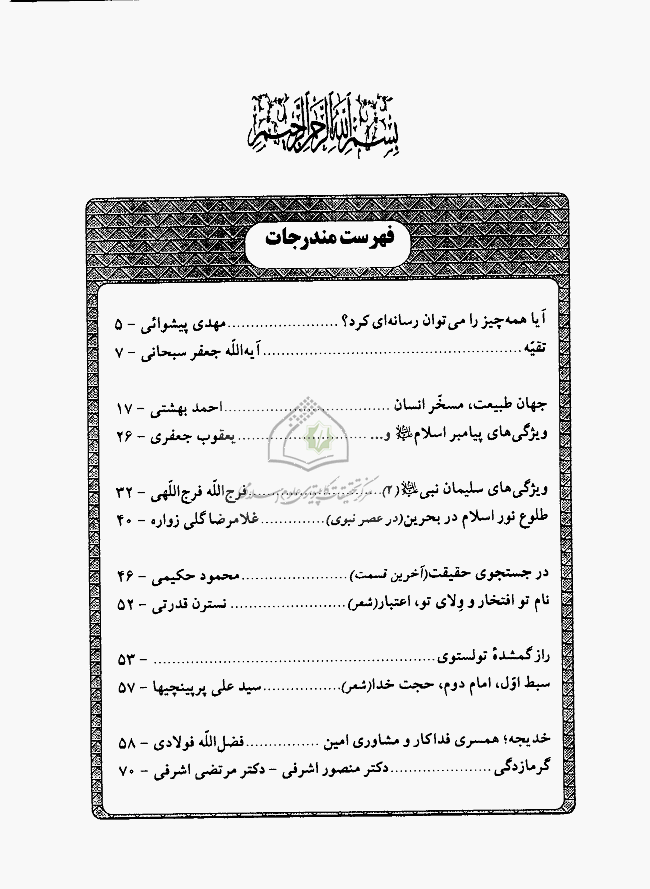 بسم الله الرحمن الرحیم
فهرست مندرجات
آیا همه‌چیز را می‌توان رسانه‌ای کرد؟ ....................... مهدی پیشوائی - ۵
تقیّه ...................................................... آیه‌اللّه جعفر سبحانی - ۷
جهان طبیعت، مسخّر انسان ................................... احمد بهشتی - ۱۷
ویژگی‌های پیامبر اسلامﷺ و... ........................... یعقوب جعفری - ۲۶
ویژگی‌های سلیمان نبی(۲) ............................ فرج‌اللّه فرج‌اللّهی - ۳۲
طلوع نور اسلام در بحرین(در عصر نبوی) ............. غلامرضا گلی زواره - ۴۰
در جستجوی حقیقت(آخرین قسمت) ...................... محمود حکیمی - ۴۶
نام تو افتخار و وِلای تو، اعتبار(شعر) ........................ نسترن قدرتی - ۵۲
راز گمشدهٔ تولستوی ........................................................... - ۵۳
سبط اوّل، امام دوم، حجت خدا(شعر) ................ سید علی پرپینچیها - ۵۷
خدیجه؛ همسری فداکار و مشاوری امین ................ فضل‌اللّه فولادی - ۵۸
گرمازدگی ..................... دکتر منصور اشرفی - دکتر مرتضی اشرفی - ۷۰